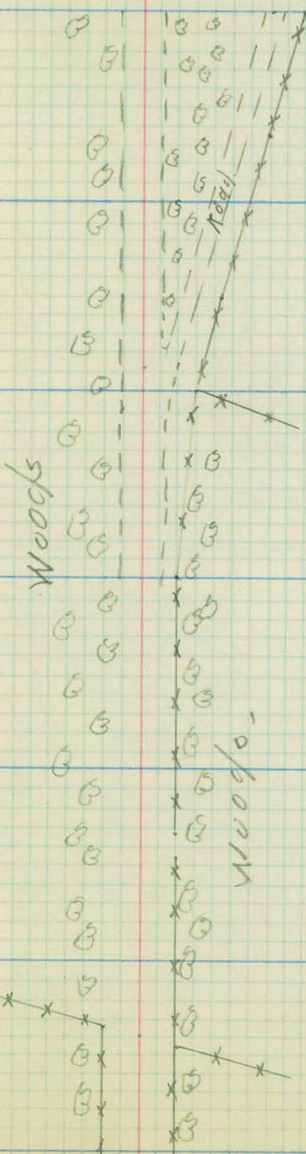 Road
Woods
Woods.